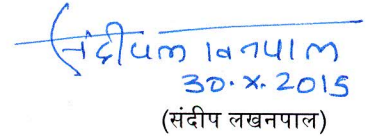 संदीप लखनपाल
30.X.2015
(संदीप लखनपाल)